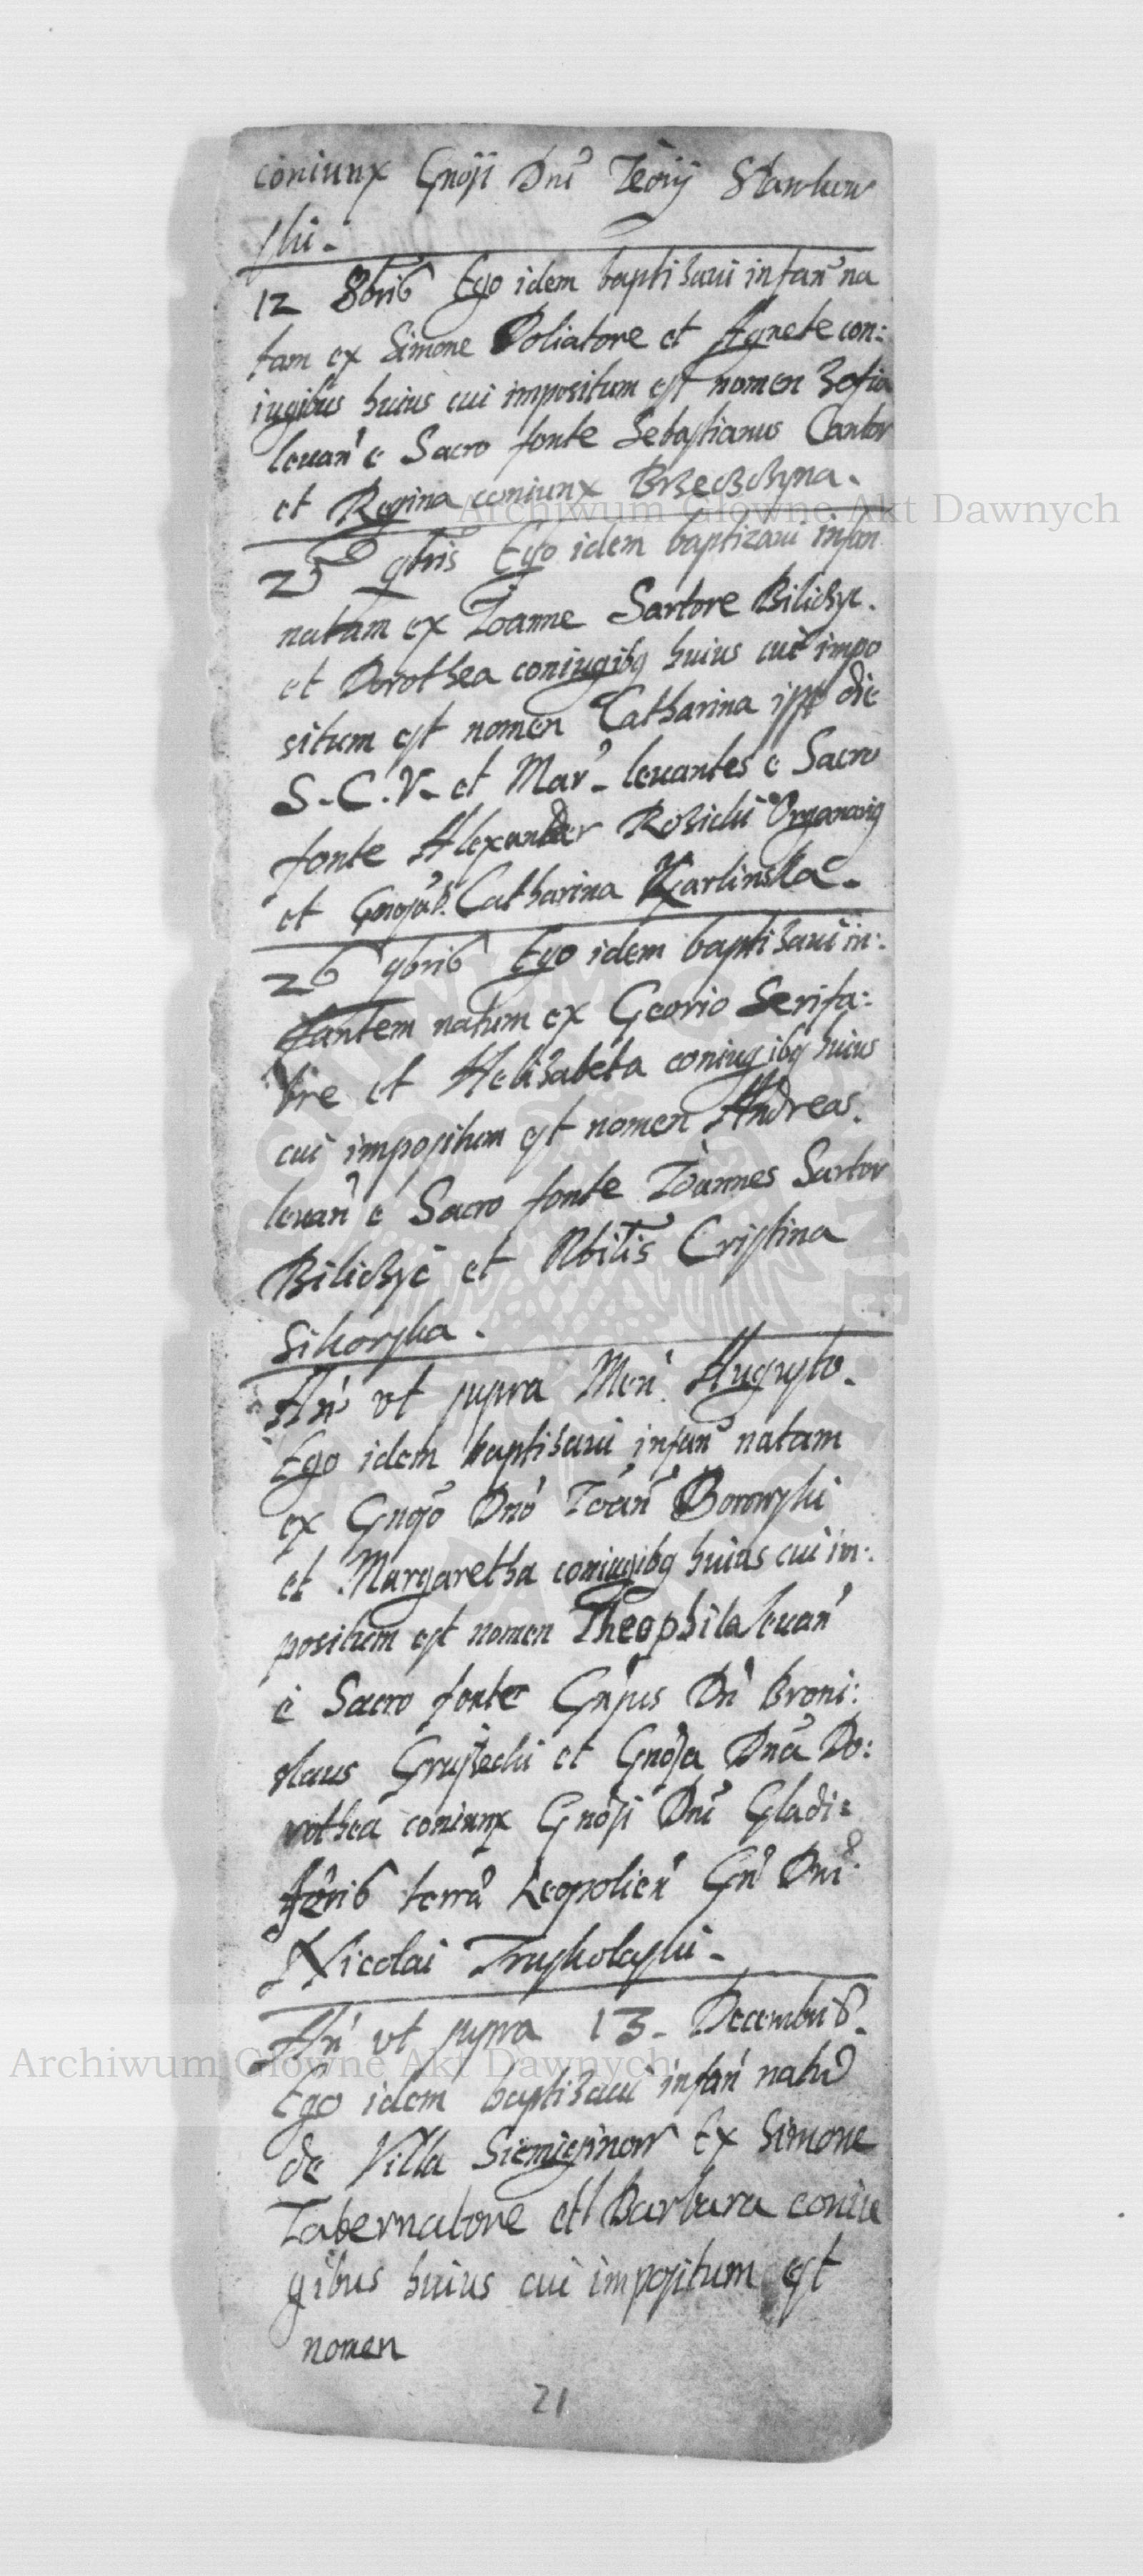 coniunx Gnosi Dni Jeorij Stankow
ski.
12 8bris Ego idem baptisaui infan na
tam ex Simone Doliatore et Agnete con:
iugibus huius cui impositum est nomen Zofia
leuan e Sacro fonte Sebastianus Cantor
et Regina coniunx Brzeczchyna.
25 9bris Ego idem baptizaui infan
natam ex Joanne Sartore Biliczyc.
et Dorothea coniugibq huius cui impo
situm est nomen Catharina ipso die
S. C. V. et Mar. leuantes e Sacro
fonte Alexander Rozicki Organarius
et Catharina Karlinska.
26 9bris Ego idem baptisaui in:
fantem natum ex Georio Serifa:
bre et Helisabeta coniugibq huius
cui impositum est nomen Andreas.
leuan e Sacro fonte Joannes Sartor
Biliczyc et Nbilis Cristina
Sikorska.
An vt supra Men Augusto.
Ego idem baptisaui infan natam
ex Gnoso Dno Joan Borowski
et Margaretha coniugibq huius cui im:
positum est nomen Theophila leuan
e Sacro fonte Gnsus Dn Broni:
slaus Grusiecki et Gnosa Dna Do:
rothea coniunx Gnosi Dni Gladi=
feris terra Leopolien Gn Dni
Nicolai Truskolaski.
An vt supra 13. Decembris.
Ego idem baptisaui infan natu
de Villa Siemiginow Ex Simone
Tabernatore et Barbara coniu
gibus huius cui impositum est
nomen
21
Archiwum Glowne Akt Dawnych
Archiwum Glowne Akt Dawnych